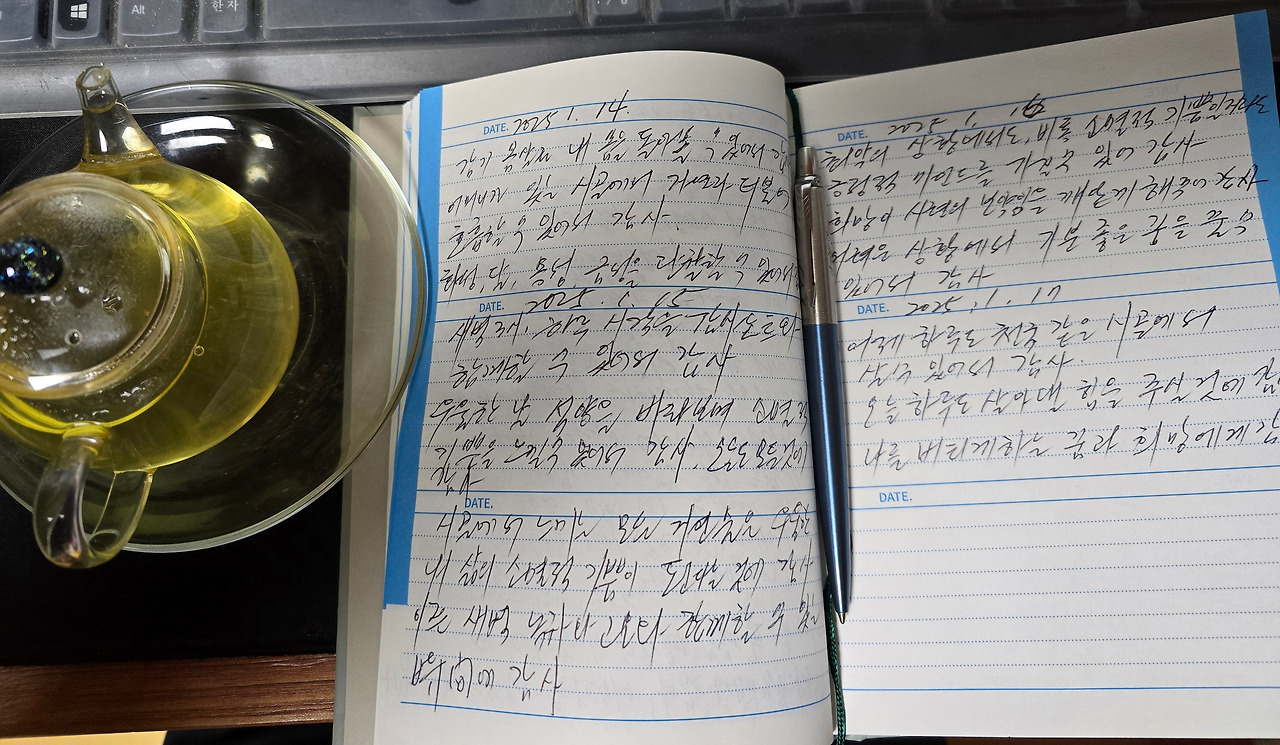 Alt
한자
DATE. 2025. 1. 14.
감기 몸살로 내 몸을 돌아볼 수 있어서 감
어머니가 있는 시골에서 자연과 더불어
호흡할 수 있어서 감사.
화성, 달, 목성, 금성을 관찰할 수 있어서
DATE. 2025. 1. 15
새벽 2시. 하루 시작을 감사노트와
함께할 수 있어서 감사
우울한 날 석양을 바라보며 소멸적
기쁨을 느낄 수 있어서 감사. 오늘도 모든것에
감사
DATE.
시골에서 느끼는 모든 자연숲은 우울한
내 삶의 소멸적 기쁨이 도와주는 것에 감사
이른 새벽 녹차나 고요타 함께할 수 있는
에 감사
DATE. 2025. 1. 16
최악의 상황에서도, 비록 소멸적 기쁨일지라도
긍정적 마인드를 가질수 있어 감사
희망이 시련의 번역임을 깨닫게 해주어 감사
어려운 상황에서 기분 좋은 꿈을 꿀 수
있어서 감사
DATE. 2025. 1. 17
어제 하루도 천국 같은 시골에서
살 수 있어서 감사.
오늘 하루도 살아낼 힘을 주실 것에 감
나를 버티게하는 꿈과 희망에게 감
DATE.